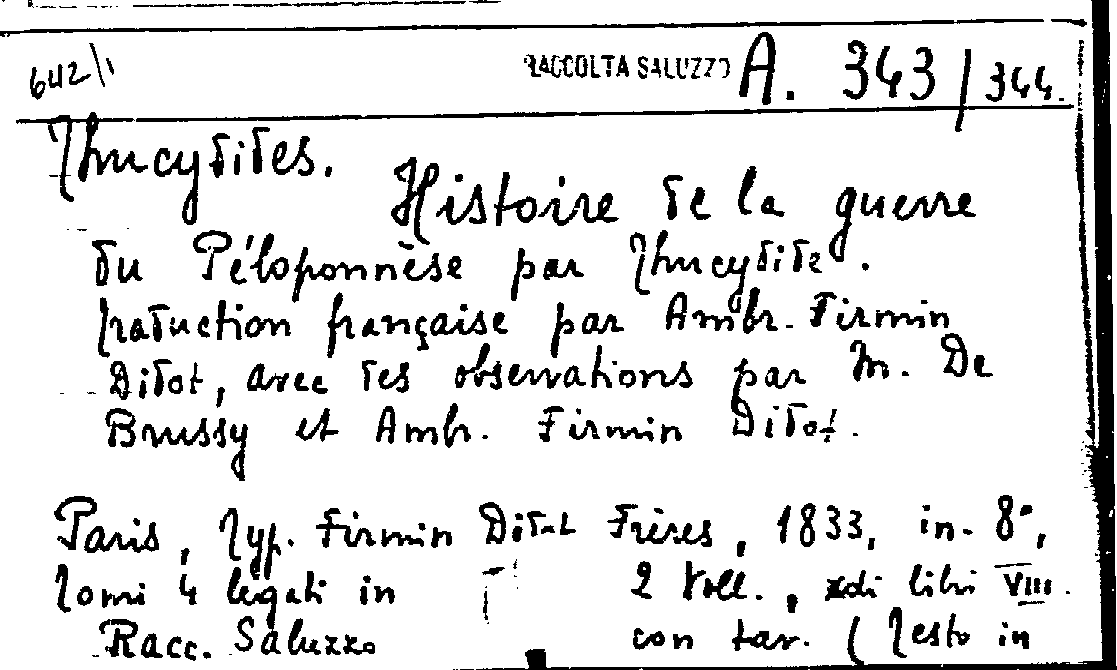 642/1 RACCOLTA SALUZZO A. 343/344.
Thucydides.
Histoire de la guerre
du Péloponnèse par Thucydide.
traduction française par Ambr. Firmin
Didot, avec des observations par M. De
Brussy et Ambr. Firmin Didot.
Paris, Typ. Firmin Didot Frères, 1833, in-8°,
Tomi 4 legati in 2 Voll., di libri VIII.
Racc. Saluzzo con tav. (Testo in